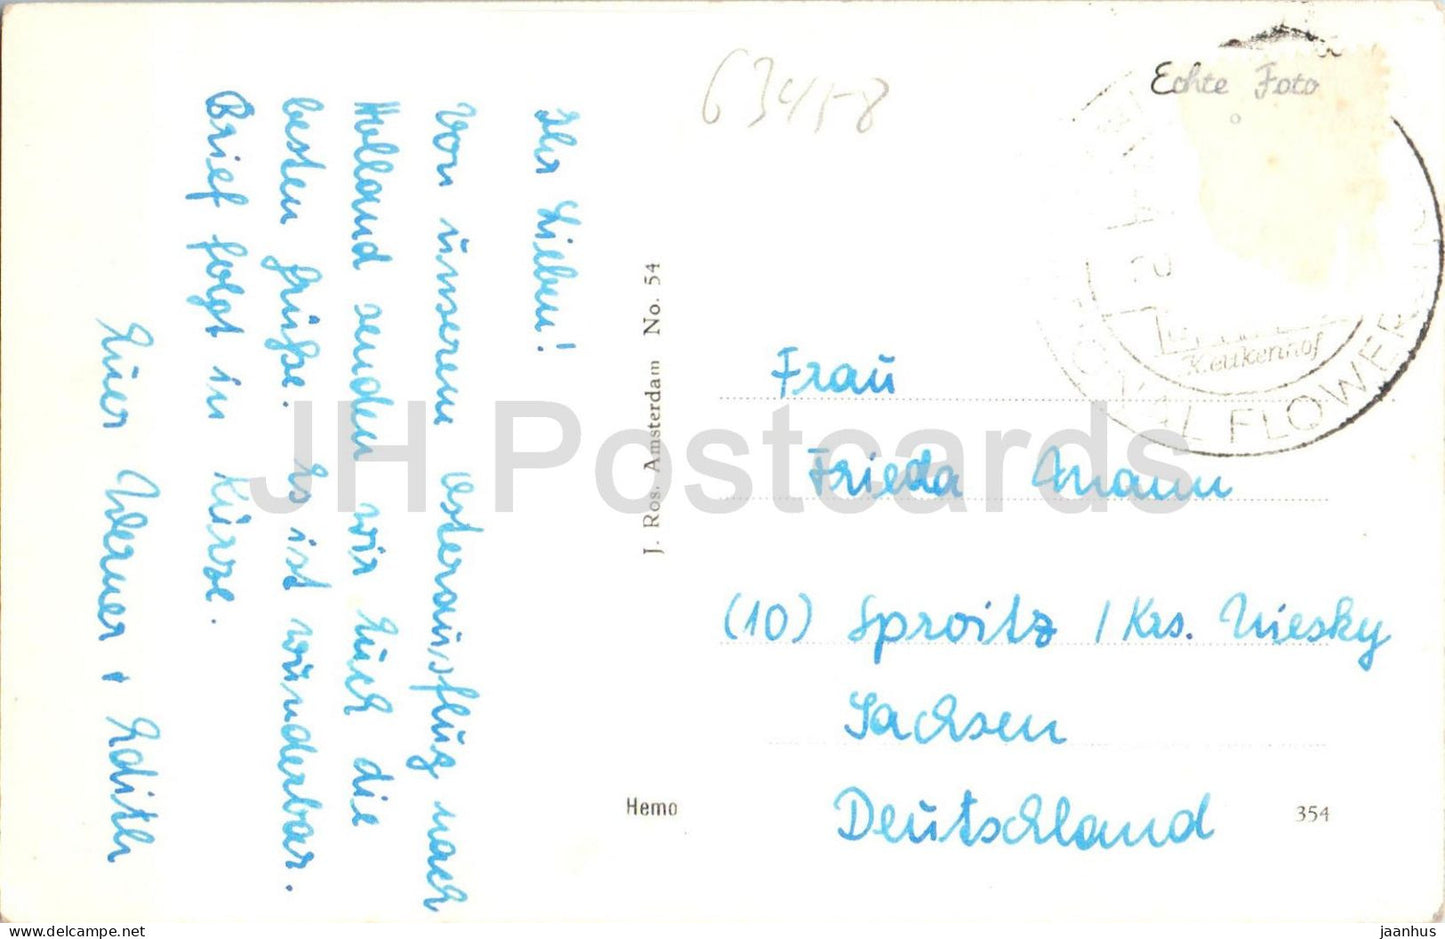 Ihr Lieben!
Von unserem Osterausflug nach
Holland senden wir Euch die
besten Grüße. Es ist wunderbar.
Brief folgt in Kürze.
Euer Werner + Edith
63458
J. Ros. Amsterdam No. 54
Hemo
Echte Foto
Keukenhof
FLOWER
Frau
Frieda Mann
(10) Sproitz / Krs. Niesky
Sachsen
Deutschland
354
JH Postcards
delcampe.net
jaanhus